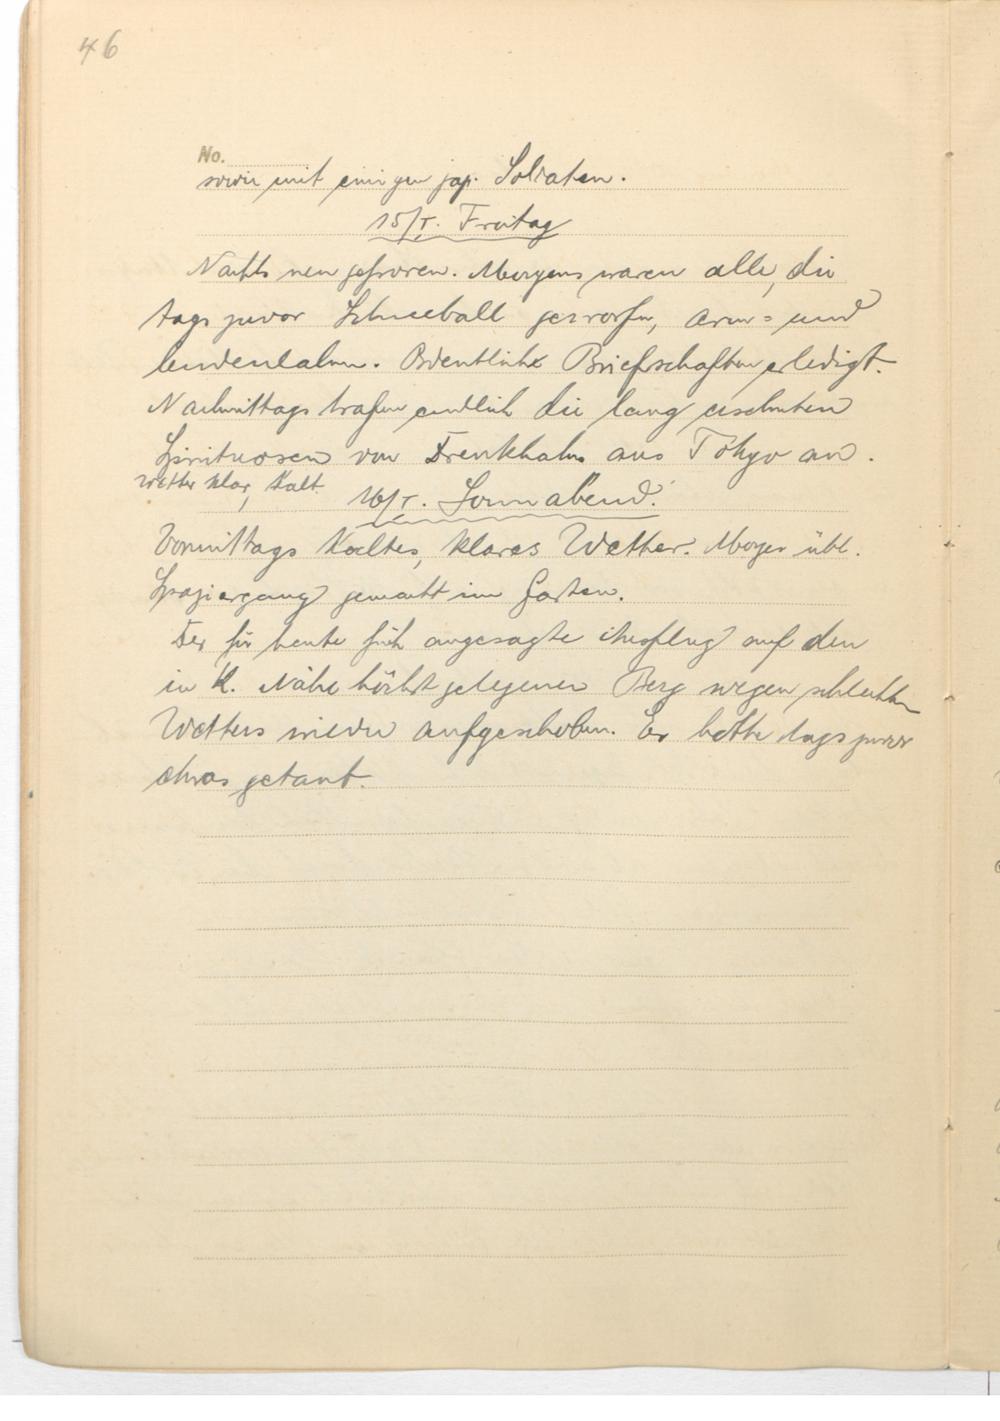 46
No.
sowie mit einigen jap. Soldaten.
15/I. Freitag
Nachts neu gefroren. Morgens waren alle, die
tags zuvor Schneeball geworfen, arm= und
lendenlahm. Ordentliche Briefschaften erledigt.
Nachmittags trafen endlich die lang ersehnten
Spirituosen von Drenkhahn aus Tokyo an.
Wetter klar, kalt.
16/I. Sonnabend.
Vormittags kaltes, klares Wetter. Morgen übl.
Spaziergang gemacht im Garten.
Der für heute früh angesagte Ausflug auf den
in K. Nähe höchst gelegenen Berg wegen schlechten
Wetters wieder aufgeschoben. Es hatte tags zuvor
etwas getaut.